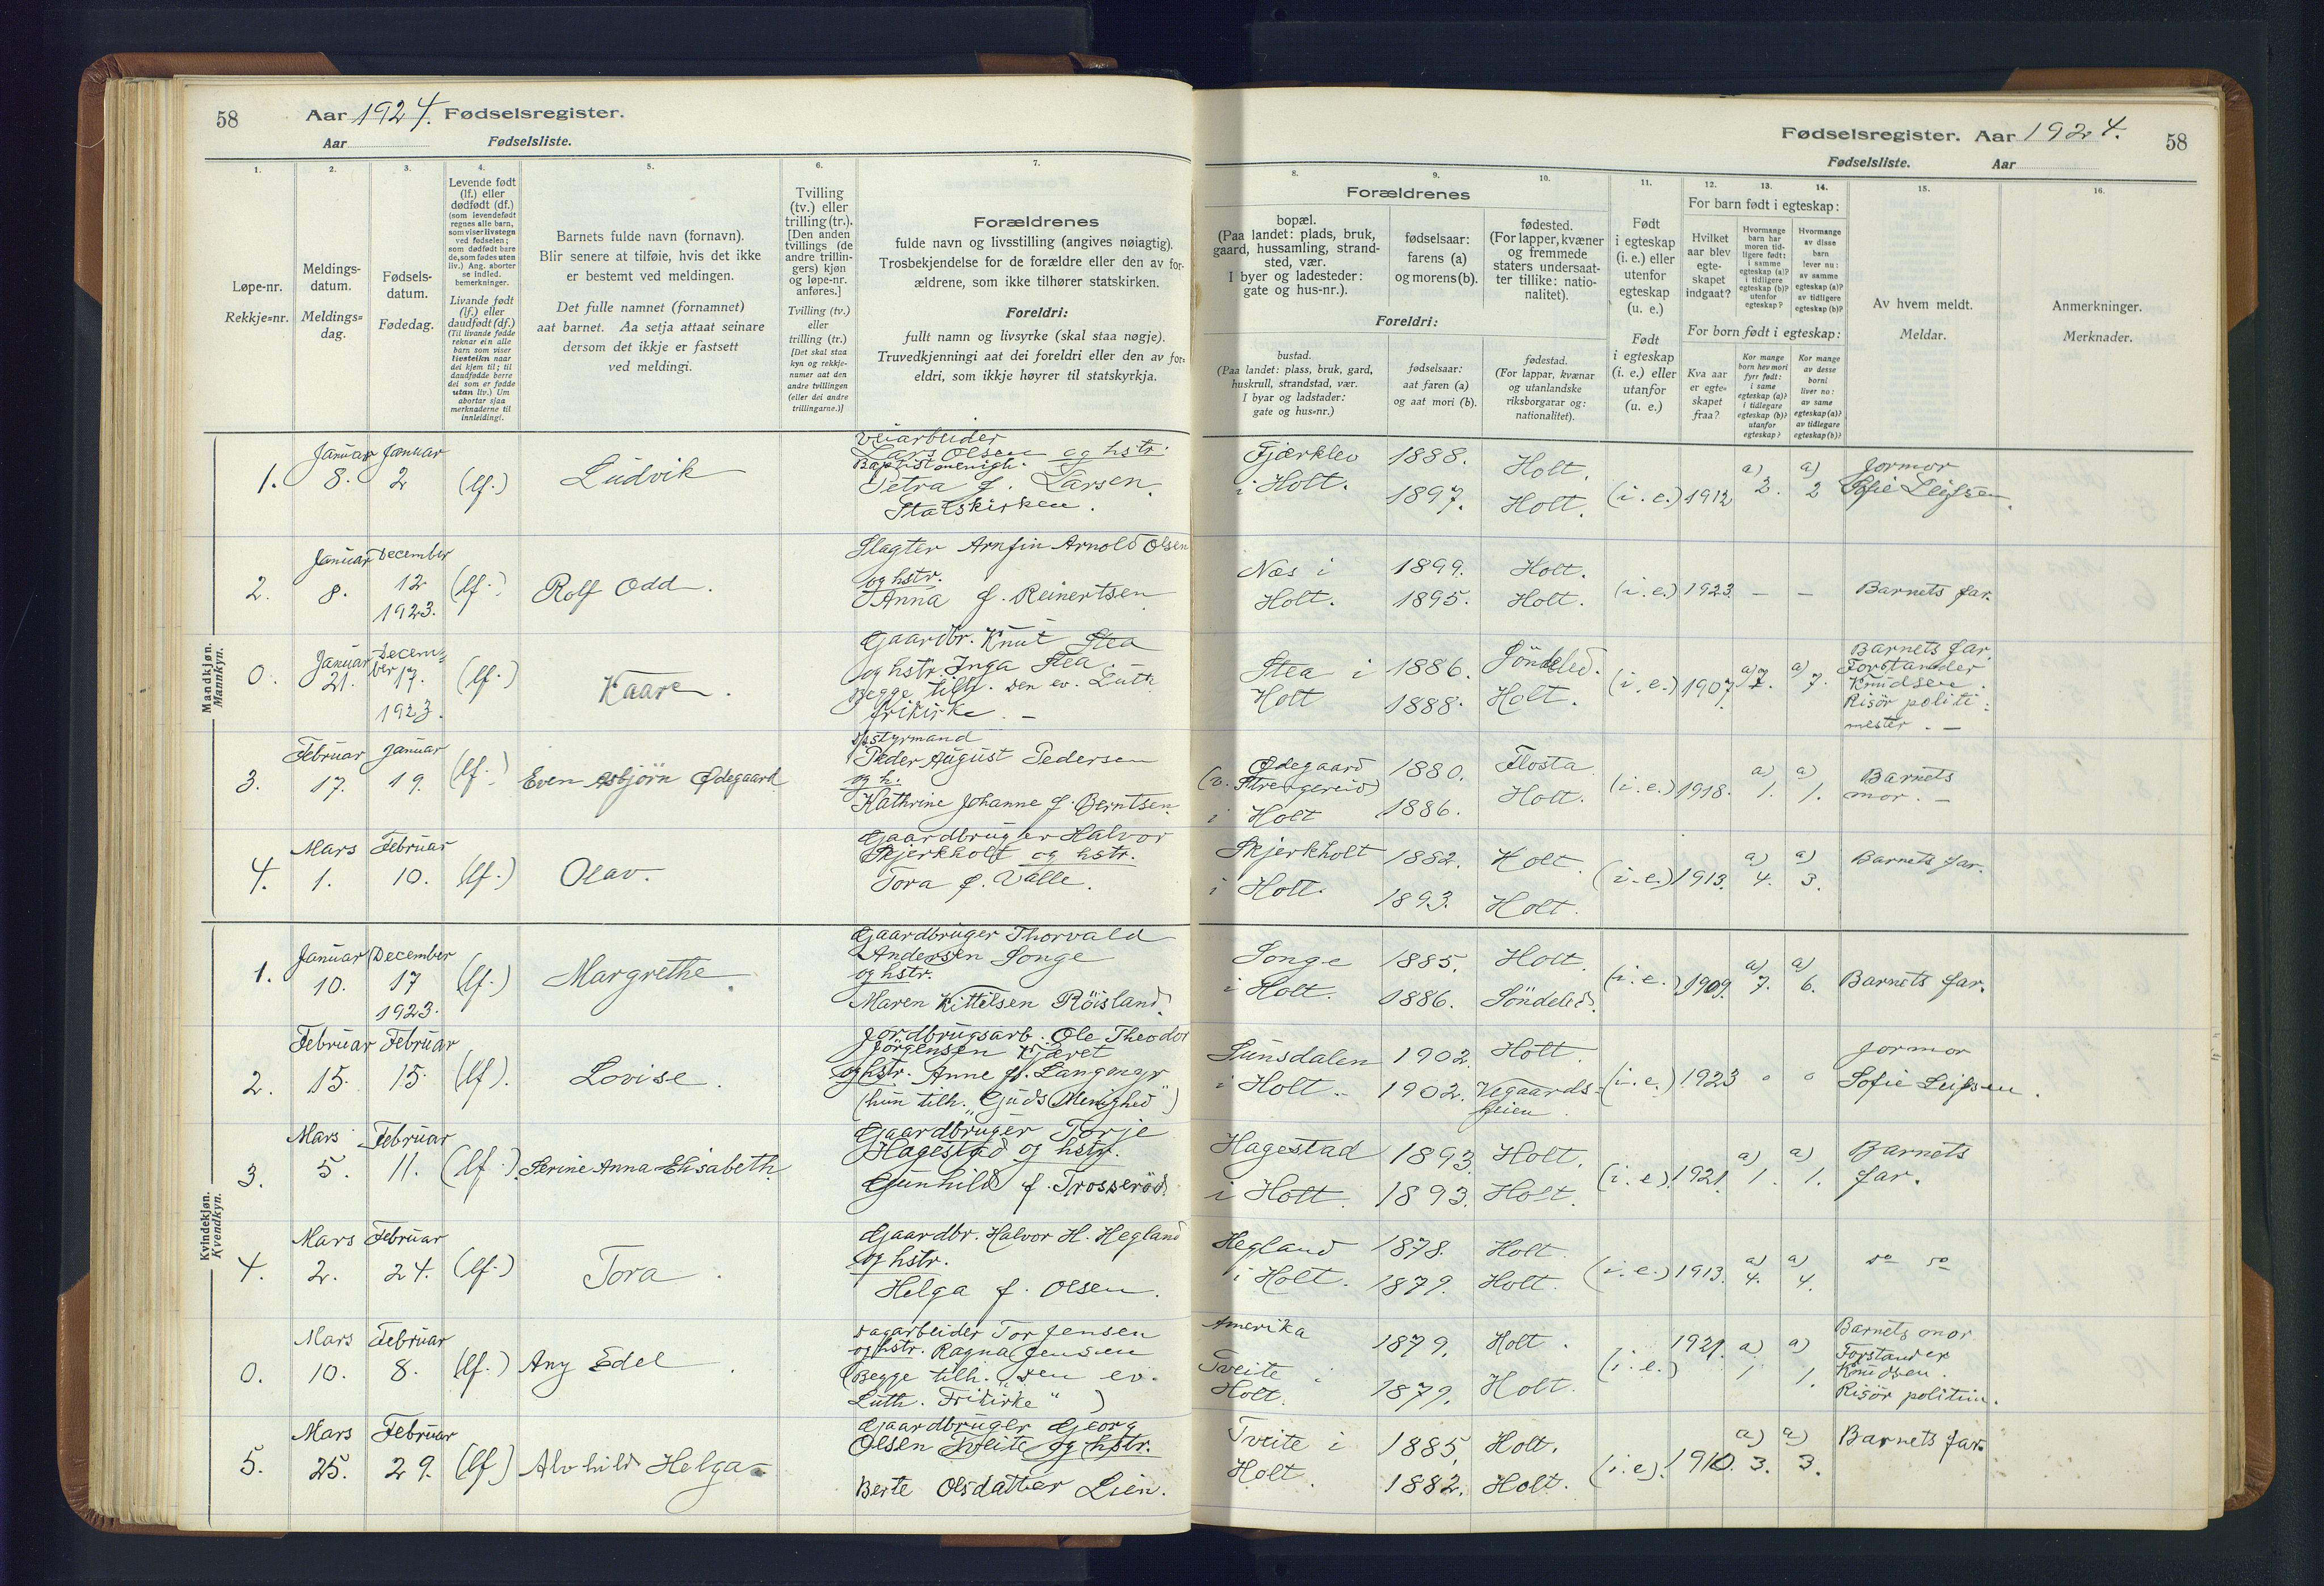 58
Aar 1924. Fødselsregister.
Aar
Fødselsliste.
1.
Løpe-nr.
Rekkje=nr.
2.
Meldings-
datum.
Meldings=
dag.
3.
Fødsels-
datum.
Fødedag.
4.
Levende født
(lf.) eller
dødfødt (df.)
(som levendefødt
regnes alle barn,
som viser livstegn
ved fødselen;
som dødfødt bare
de, som fødes uten
liv.) Ang. aborter
se indled.
bemerkninger.
Livande født
(lf.) eller
daudfødt (df.)
(Til livande fødde
reknar ein alle
barn som viser
livsteikn naar
dei kjem til; til
daudfødde berre
dei som er fødde
utan liv.) Um
abortar sjaa
merknaderne til
innleidingi.
5.
Barnets fulde navn (fornavn).
Blir senere at tilføie, hvis det ikke
er bestemt ved meldingen.
Det fulle namnet (fornamnet)
aat barnet. Aa setja attaat seinare
dersom det ikkje er fastsett
ved meldingi.
6.
Tvilling
(tv.) eller
trilling (tr.).
[Den anden
tvillings (de
andre trillin-
gers) kjøn
og løpe-nr.
anføres.]
Tvilling (tv.)
eller
trilling (tr.)
[Det skal staa
kyn og rekkje-
numer aat den
andre tvillingen
(eller dei andre
trillingarne.)]
7.
Forældrenes
fulde navn og livsstilling (angives nøiagtig).
Trosbekjendelse for de forældre eller den av for-
ældrene, som ikke tilhører statskirken.
Foreldri:
fullt namn og livsyrke (skal staa nøgje).
Truvedkjenningi aat dei foreldri eller den av for-
eldri, som ikkje høyrer til statskyrkja.
Fødselsregister. Aar 1924.
58
Fødselsliste. Aar
8.
Forældrenes
bopæl.
(Paa landet: plads, bruk,
gaard, hussamling, strand-
sted, vær.
I byer og ladesteder:
gate og hus-nr.).
Foreldri:
bustad.
(Paa landet: plass, bruk, gard,
huskrull, strandstad, vær.
I byar og ladstader:
gate og hus=nr.)
9.
fødselsaar:
farens (a)
og morens (b).
fødselsaar:
aat faren (a)
og aat mori (b).
10.
fødested.
(For lapper, kvæner
og fremmede
staters undersaat-
ter tillike: natio-
nalitet).
fødestad.
(For lappar, kvænar
og utanlandske
riksborgarar og:
nationalitet).
11.
Født
i egteskap
(i. e.) eller
utenfor
egteskap
(u. e.)
Født
i egteskap
(i. e.) eller
utanfor
(u. e.)
12.
For barn født i egteskap:
Hvilket
aar blev
egte-
skapet
indgaat?
For born født i egteskap:
Kva aar
er egte-
skapet
fraa?
13.
Hvormange
barn har
moren tid-
ligere født:
i samme
egteskap (a)?
i tidligere
egteskap (b)?
utenfor
egteskap?
Kor mange
born hev mori
fyrr født:
i same
egteskap (a)?
i tidlegare
egteskap (b)?
utanfor
egteskap?
14.
Hvormange
av disse
barn
lever nu:
av samme
egteskap (a)?
av tidligere
egteskap (b)?
Kor mange
av desse
borni
liver no:
av same
egteskap (a)?
av tidlegare
egteskap (b)?
15.
Av hvem meldt.
Meldar.
16.
Anmerkninger.
Merknader.
Mandkjøn.
Mannkyn.
1.
Januar
8.
Januar
2
(lf.)
Ludvik
Veiarbeider
Lars Olsen og hstr.
Baptistmenigh.
Petra f. Larsen.
Statskirken.
Fjærklev
i Holt.
1888.
1897.
Holt.
Holt.
(i.e.)
1912
a)
2.
a)
2
Jormor
Sofie Leifsen.
2.
Januar
8.
December
12
1923.
(lf.)
Rolf Odd.
Slagter Arnfin Arnold Olsen
og hstr.
Anna f. Reinertsen
Næs i
Holt.
1899.
1895.
Holt.
Holt.
(i.e.)
1923
–
–
Barnets far.
0.
Januar
21.
Decem=
ber 17.
1923.
(lf.)
Kaare.
Gaardbr. Knut Stea
og hstr. Inga Stea
Begge tilh. den ev. Luth.
frikirke. –
Stea i
Holt
1886.
1888.
Söndeled.
Holt.
(i.e.)
1907
a)
7.
a)
7.
Barnets far.
Forstander
Knudsen.
Risör politi=
mester. –
3.
Februar
17.
Januar
19.
(lf.)
Even Asbjörn Ødegaard
styrmand
Peder August Pedersen
og h.
Kathrine Johanne f. Berntsen.
Ødegaard
(v. Strengereid)
i Holt
1880.
1886.
Flosta
Holt.
(i.e.)
1918.
a)
1.
a)
1.
Barnets
mor. –
4.
Mars
1.
Februar
10.
(lf.)
Olav.
Gaardbruger Halvor
Skjerkholt og hstr.
Tora f. Valle.
Skjerkholt
i Holt.
1882.
1893.
Holt.
Holt.
(i.e.)
1913.
a)
4.
a)
3.
Barnets far.
Kvindekjøn.
Kvendkyn.
1.
Januar
10.
December
17
1923.
(lf.)
Margrethe.
Gaardbruger Thorvald
Andersen Songe
og hstr.
Maren Kittilsen Röisland.
Songe
i Holt.
1885.
1886.
Holt.
Söndeled.
(i.e.)
1909.
a)
7.
a)
6.
Barnets far.
2.
Februar
15.
Februar
15.
(lf).
Lovise.
Jordbrugsarb. Ole Theodor
Jörgensen Kjæret
og hstr. Anne f. Langmyr
(hun tilh. "Guds Menighed")
Sunsdalen
i Holt.
1902.
1902.
Holt.
Vegaards-
heien.
(i.e.)
1923
o
o
Jormor
Sofie Leifsen.
3.
Mars
5.
Februar
11.
(lf.)
Serine Anna Elisabeth.
Gaardbruger Torje
Hagestad og hstr.
Gunhild f. Trosseröd
Hagestad
i Holt
1893.
1893.
Holt.
Holt.
(i.e)
1921.
a)
1.
a)
1.
Barnets
far.
4.
Mars
2.
Februar
24.
(lf.)
Tora.
Gaardbr. Halvor H. Hegland
og hstr.
Helga f. Olsen.
Hegland
i Holt.
1878.
1879.
Holt.
Holt.
(i.e.)
1913.
a)
4.
a)
4.
do do
0.
Mars
10.
Februar
8.
(lf.)
Any Edel.
Dagarbeider Tor Jensen
og hstr. Ragna Jensen
(Begge tilh. "den ev.
Luth. Frikirke")
Amerika
Tveite i
Holt.
1879.
1879.
Holt.
Holt.
(i.e.)
1921.
a)
1
a)
1.
Barnets mor
Forstander
Knudsen.
Risör politim.
5.
Mars
25.
Februar
29.
(lf)
Alvhild Helga
Gaardbruger Georg
Olsen Tveite og hstr.
Berte Olsdatter Lien.
Tveite i
Holt.
1885.
1882.
Holt.
Holt.
(i.e).
1910.
a)
3.
a)
3.
Barnets far.